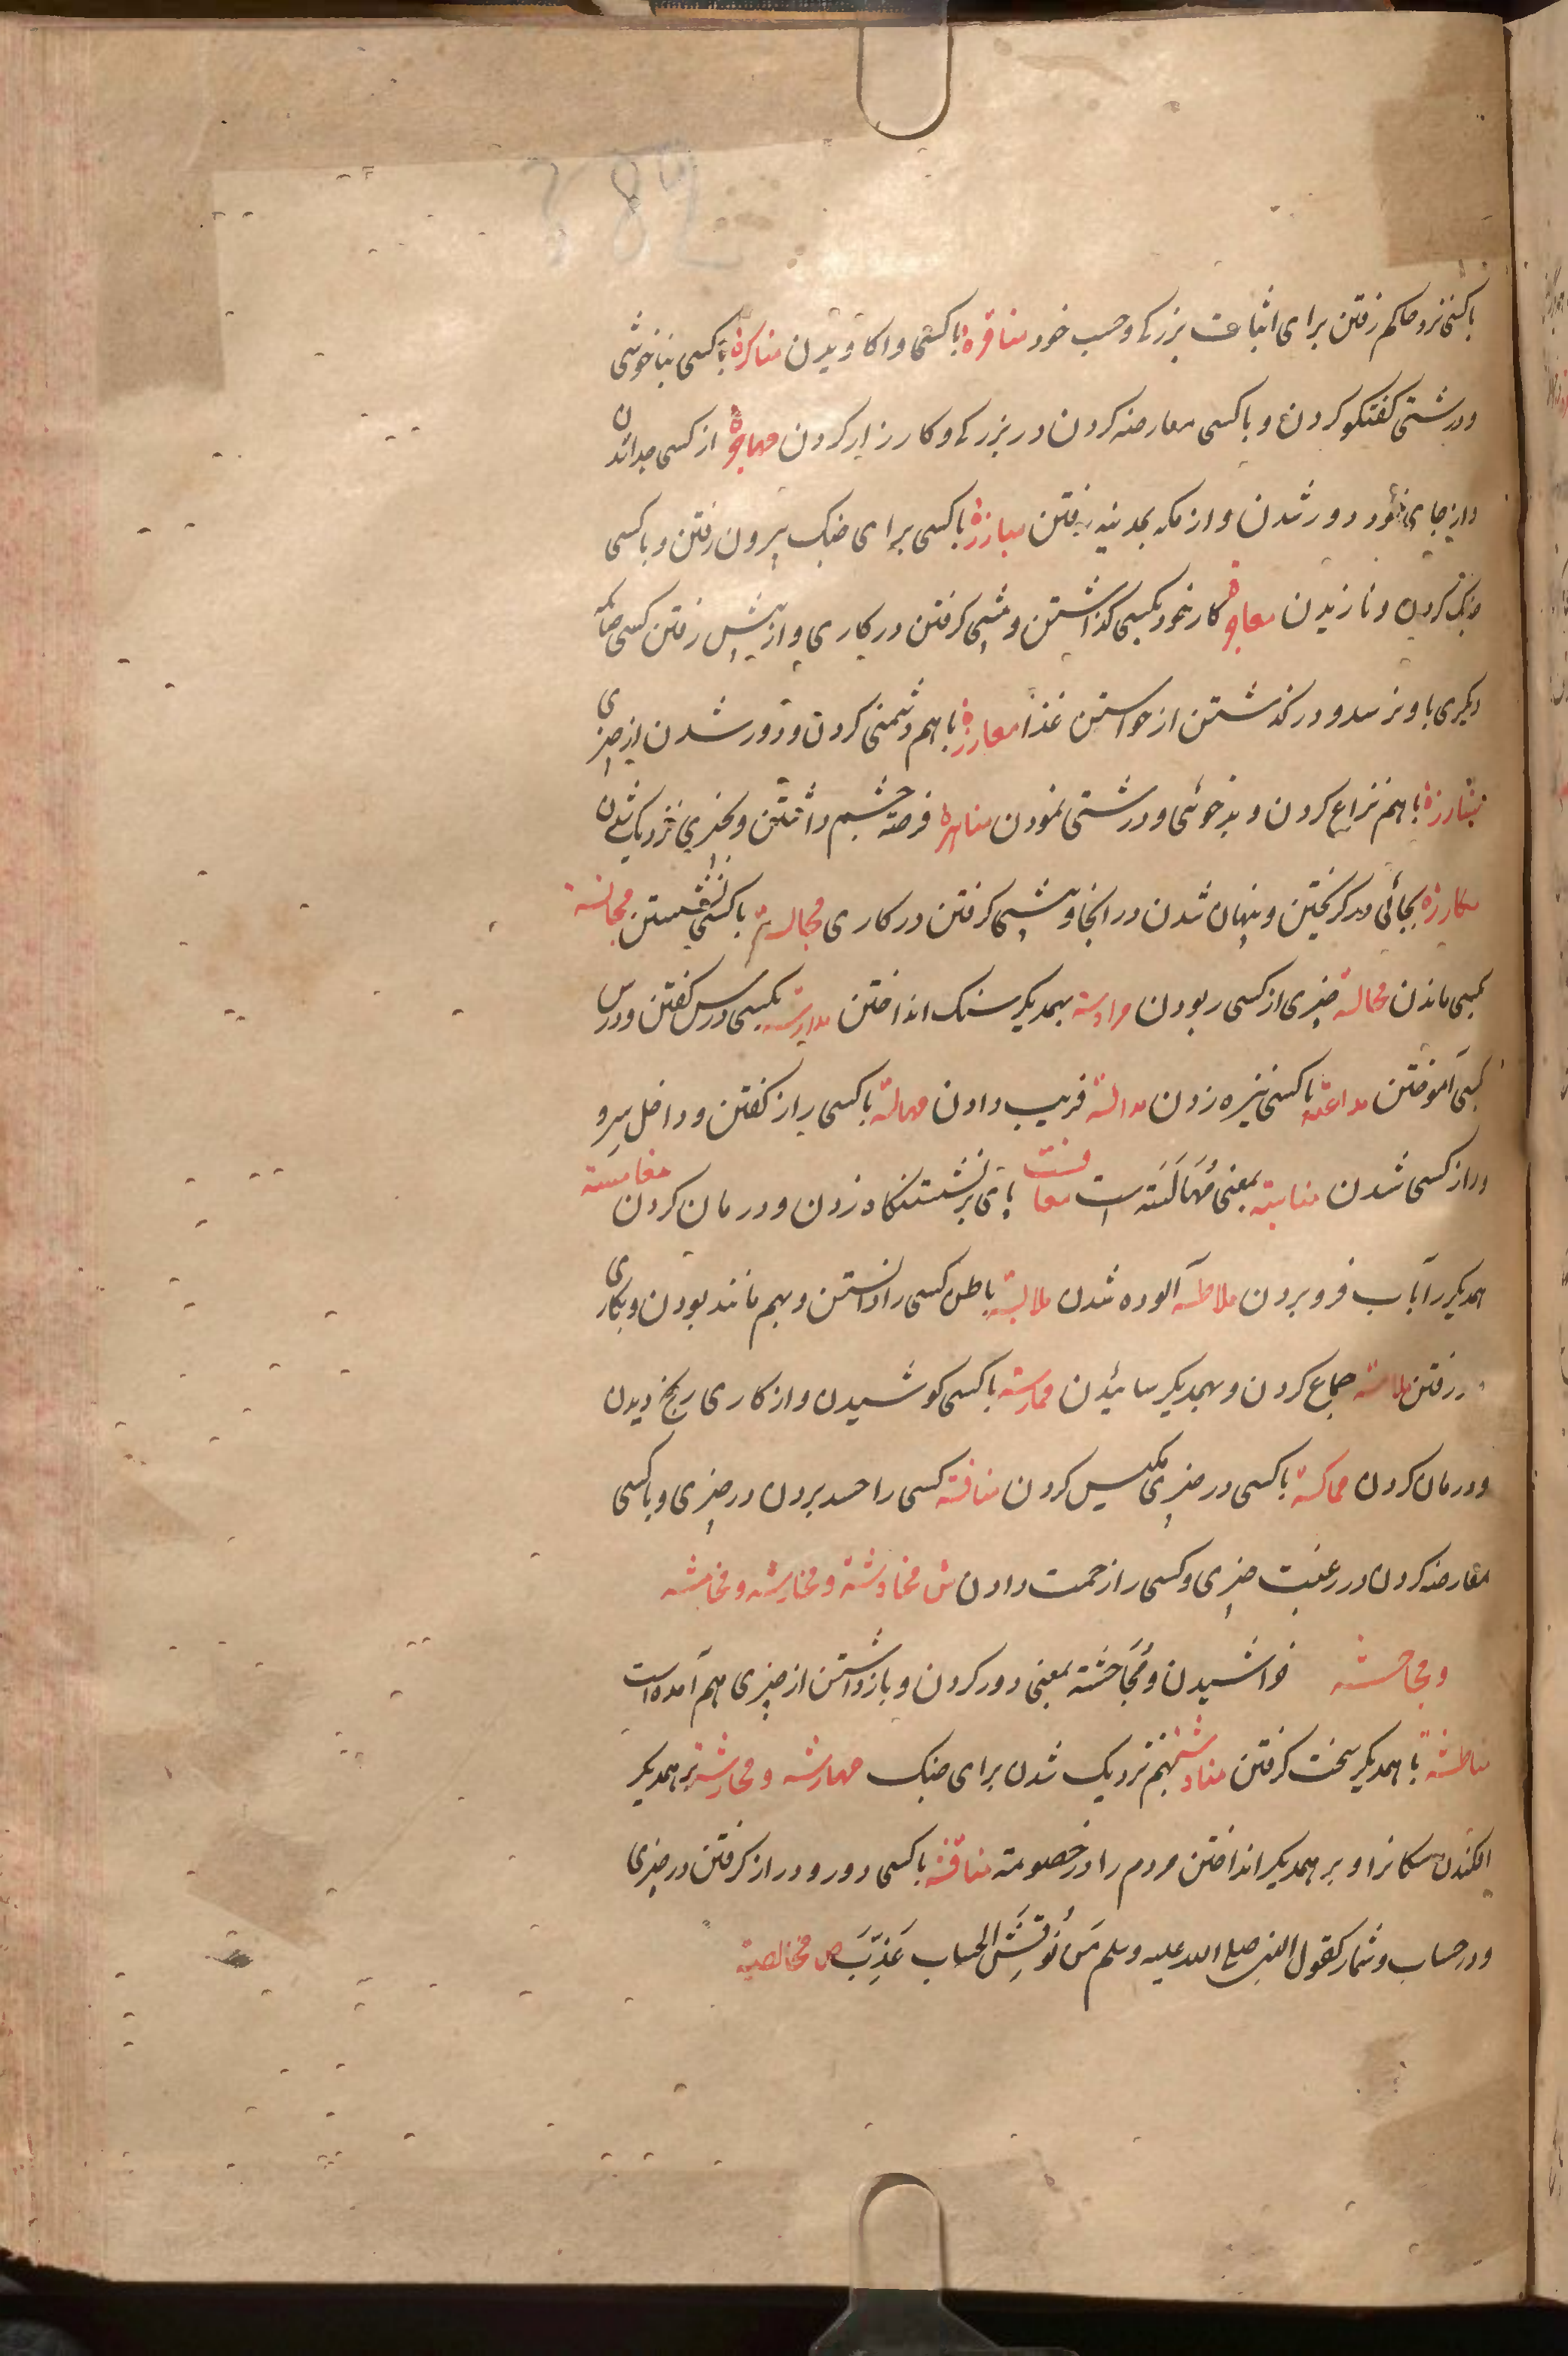 باکسی نزد حاکم رفتن برای اثبات بزرکی وحسب خود مناقرة باکسی واکاویدن مناکرة باکسی بناخوشی
ودرشتی کفتکو کردن و باکسی معارضه کردن در بزرکی وکارزار کردن مهاجرة از کسی جدا شدن
واز جای خود دور شدن واز مکه بمدینه رفتن مبارزة باکسی برای جنک بیرون رفتن و باکسی
جنک کردن ونازیدن معاجزة کار خود بکسی کذاشتن وپیشی کرفتن در کاری واز پیش رفتن کسی چنانکه
دیکری باو نرسد ودر کذشتن از خواستن غذا معارزة باهم دشمنی کردن ودور شدن از چیزی
مشارزة باهم نزاع کردن وبدخوئی ودرشتی نمودن مناهزة فرصة چشم داشتن وبچیزی نزدیک شدن
مکارزة بجائی در کریختن وپنهان شدن در انجا وپیشی کرفتن در کاری مجالسة باکسی نشستن مجانسة
بکسی ماندن مخالسة چیزی از کسی ربودن مرادسة بهمدیکر سنک انداختن مدارسة بکسی درس کفتن ودرس
کسی آموختن مداعسة باکسی نیزه زدن مدالسة فریب دادن مهامسة باکسی راز کفتن وداخل سر و
وراز کسی شدن منامسة بمعنی مهامسة است معافسة پای بر نشستنکاه زدن ودرمان کردن مغامسة
همدیکر را باب فرو بردن ملاطسة آلوده شدن ملابسة باطن کسی را دانستن وبهم مانند بودن وبکاری
در رفتن ملامسة جماع کردن وبهمدیکر سائیدن ممارسة باکسی کوشیدن واز کاری رنج دیدن
ودرمان کردن مماکسة باکسی در چیزی مکیس کردن منافسة کسی را حسد بردن در چیزی وباکسی
معارضه کردن در رغبت چیزی وکسی را زحمت دادن ش مخادشة ومخارشة ومخامشة
ومجاحشة خراشیدن ومجاحشة بمعنی دور کردن وبازداشتن از چیزی هم آمده است
مناطشة باهمدیکر سخت کرفتن مناوشة بهم نزدیک شدن برای جنک مهارشة ومحارشة برهمدیکر
افکندن سکانرا وبر همدیکر انداختن مردم را در خصومة مناقشة باکسی دور ودراز کرفتن در چیزی
ودر حساب وشمار کقول النبی صلی الله علیه وسلم مَن نُوقِشَ الحساب عُذِّبَ ص مخالصة